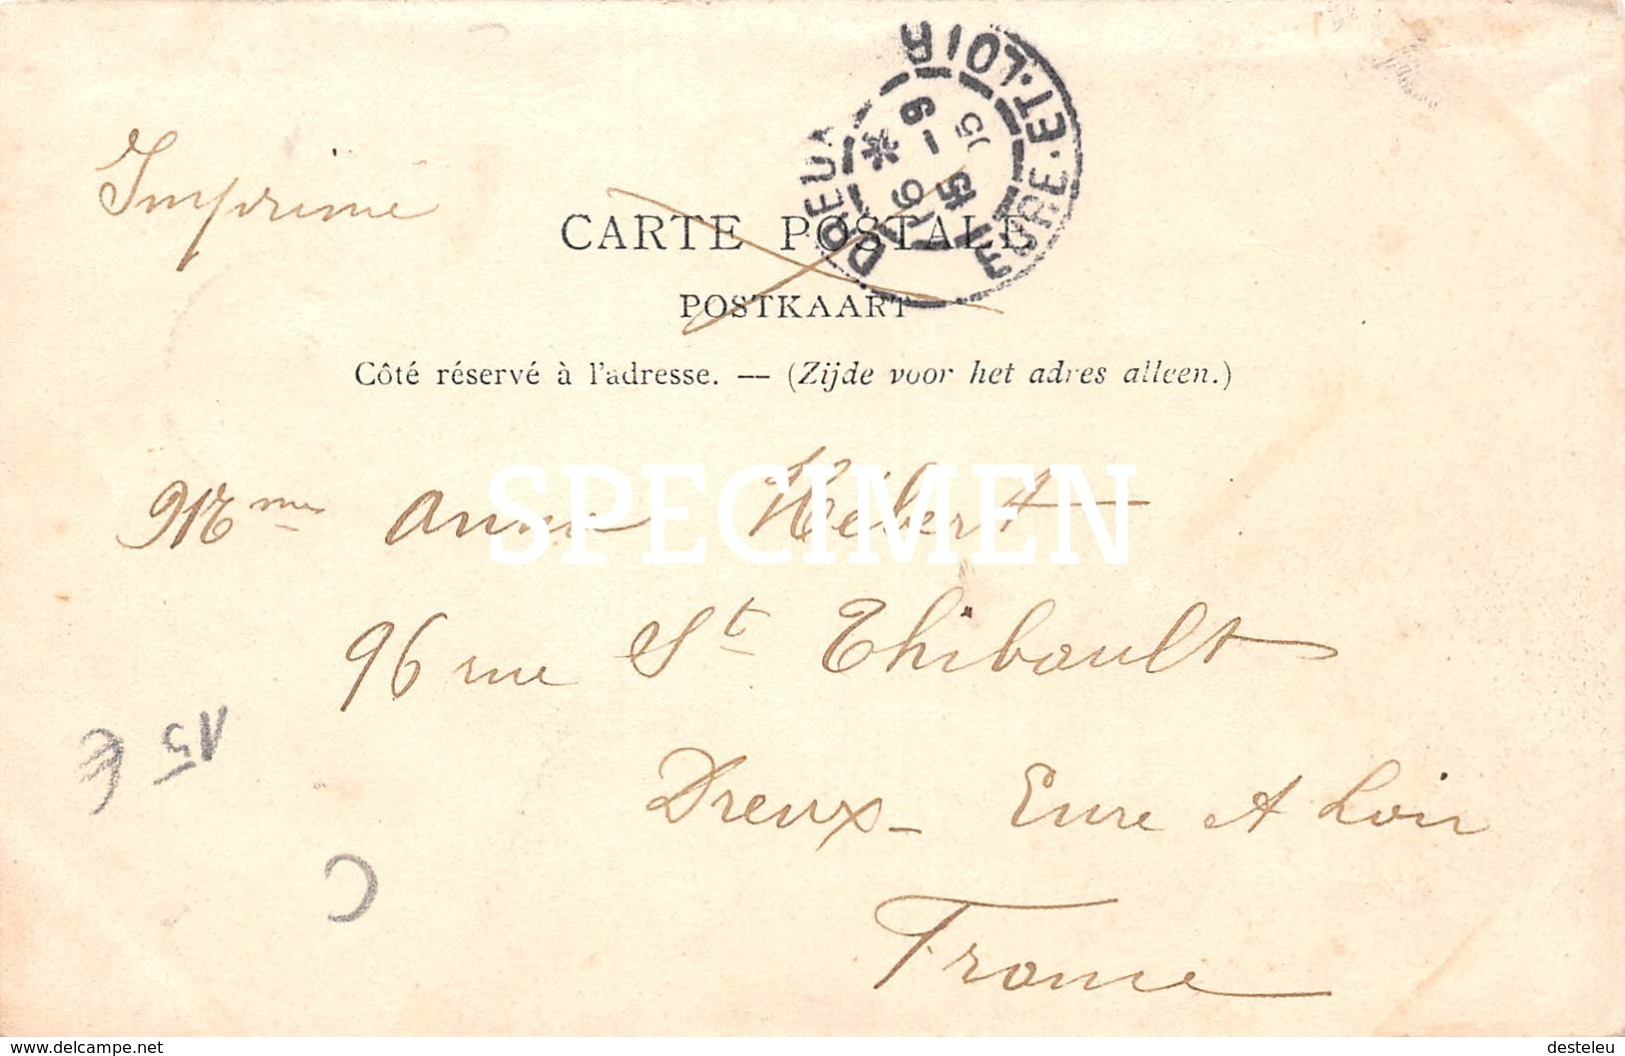 Imprimé
CARTE POSTALE
POSTKAART
DREUX EURE-ET-LOIR
Côté réservé à l'adresse. — (Zijde voor het adres alleen.)
SPECIMEN
Mme Anna Hébert
96 rue St Thibault
Dreux - Eure et Loir
France
15 €
delcampe.net
desteleu